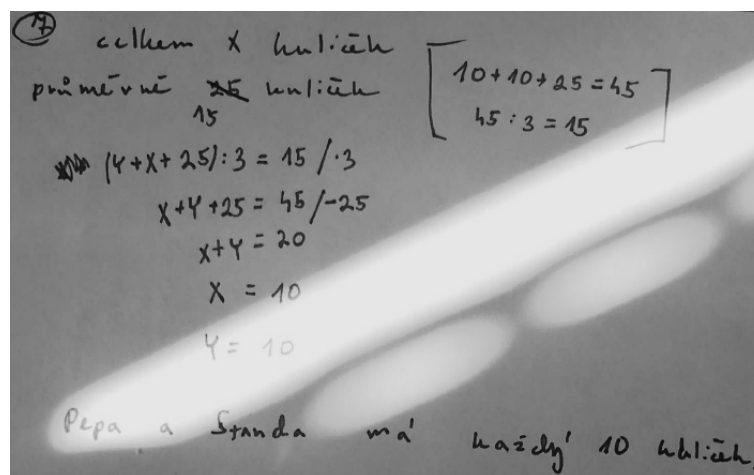 17 celkem X kuliček
průměrně 25 kuliček
15
[10+10+25=45
45:3=15]
(Y+X+25):3=15/·3
X+Y+25=45/-25
X+Y=20
X=10
Y=10
Pepa a Standa má každý 10 kuliček